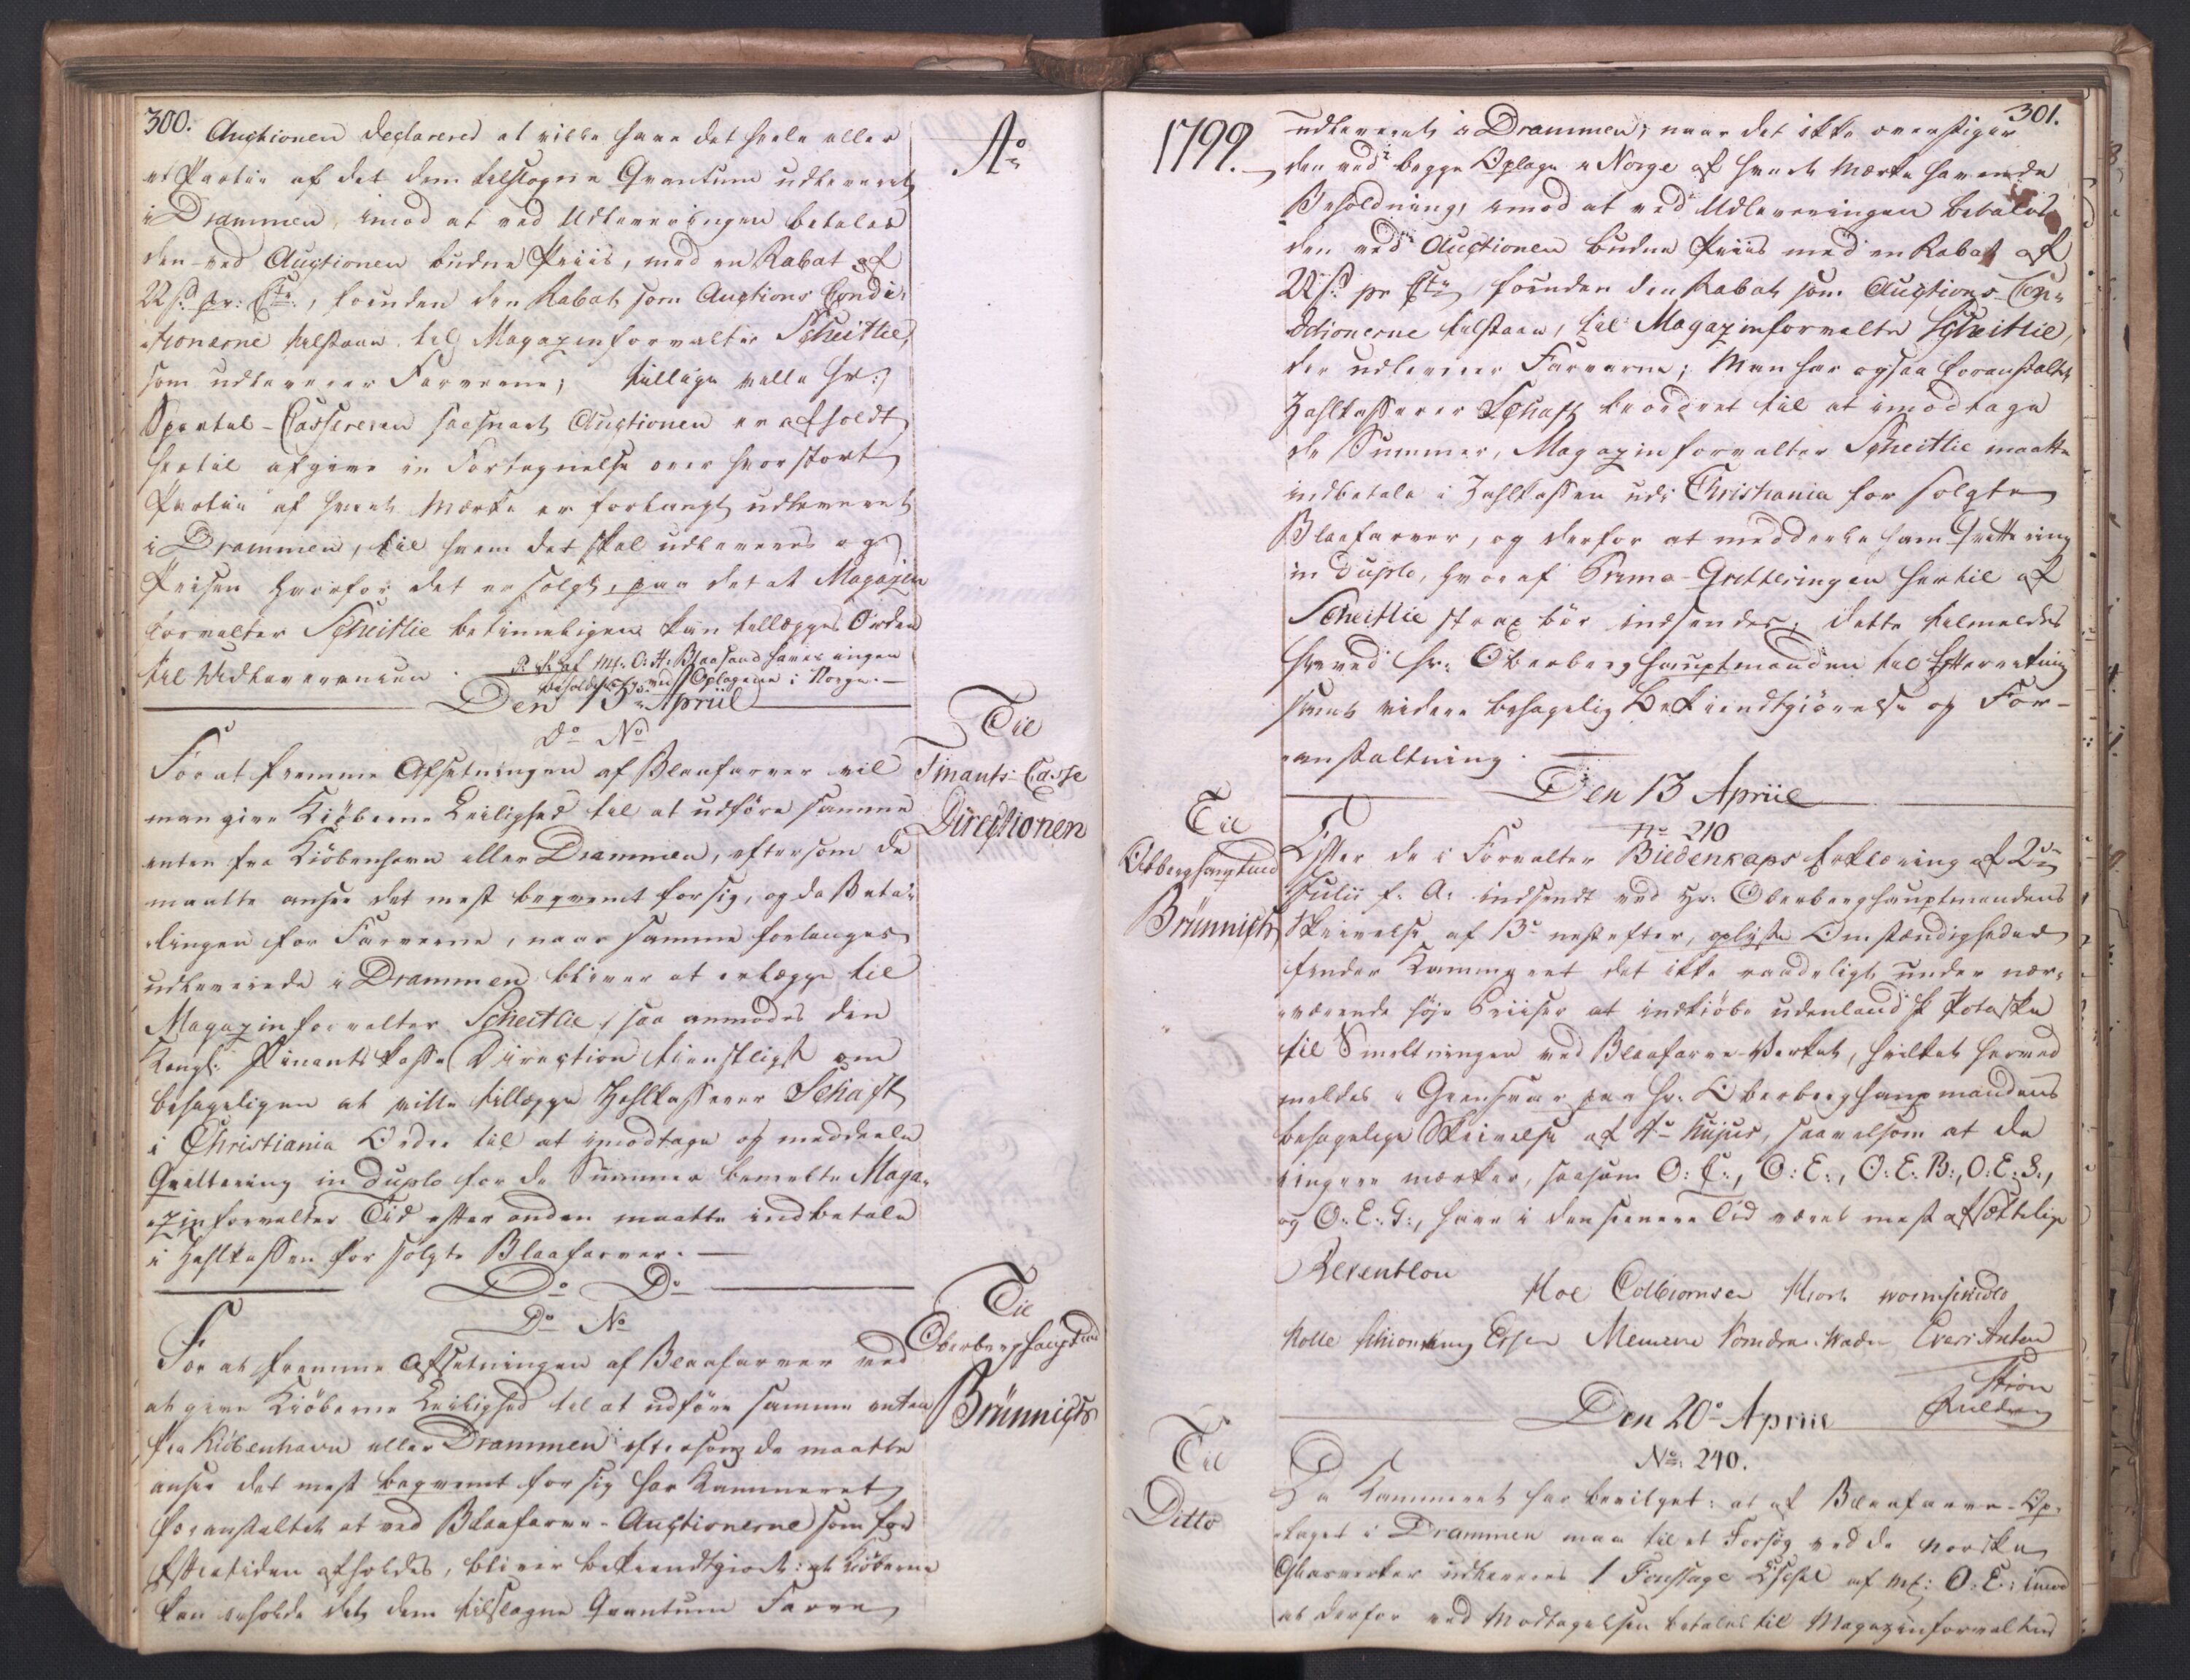 300.
Auctionen declarered at ville have det heele eller
et Partie af det dem tilslagne Qvantum udleveret
i Drammen, imod at ved Udleveringen betales
den ved Auctionen budne Priis, med en Rabat af
22 s. pr: Ctr., foruden den Rabat som Auctions Condi-
tionerne tilstaae, til Magazinforvalter Scheitlie,
som udleverer Farverne; tillige ville Hr:
Sportul-Cassereren saasnart Auctionen er afholdt
hertil afgive en Fortegnelse over hvor stort
Partie af hvert Mærke er forlangt udleveret
i Drammen, til hvem det skal udleveres og
Prisen hvorfor det er solgt, paa det at Magazin
forvalter Scheitlie betimeligen kan tillægges Ordre
til Udleverensen.
P. S. af Mk: O: H: Blaasand haves ingen
Beholdning ved Oplagene i Norge.
Den 13 Apriil
Ao
Do No
Til
Finants-Casse
Directionen
For at fremme Afsetningen af Blaafarver vil
man give Kiøberne Leilighed til at udføre samme
enten fra Kiöbenhavn eller Drammen, eftersom de
maatte ansee det mest beqvemt for sig, og da Beta-
lingen for Farverne, naar samme forlanges
udleverede i Drammen bliver at erlægge til
Magazinforvalter Scheitlie, saa anmodes den
Kongl: Finantskasse Direction tienstligst om
behageligen at ville tillægge Zahlkasserer Schaft
i Christiania Ordre til at imodtage og meddeele
Qvittering in duplo for de Summer bemelte Maga-
zinforvalter Tid efter anden maatte indbetale
i Zahlkassen for solgte Blaafarver.
Do Do
Do No
Til
Oberberghauptmd
Brünnich
For at fremme Afsetningen af Blaafarver ved
at give Kiöberne Leilighed til at udføre samme enten
fra Kiöbenhavn eller Drammen eftersom de maatte
ansee det mest beqvemt for sig har Kammeret
foranstaltet at ved Blaafarve-Auctionerne som for
Eftertiden afholdes, bliver bekiendtgiort: at Kiöberne
kan erholde det dem tilslagne Qvantum Farve
1799.
301.
udleveret i Drammen, naar det ikke overstiger
den ved begge Oplage i Norge af hvert Mærke havende
Beholdning, imod at ved Udleveringen betales
den ved Auctionen budne Priis med en Rabat af
22 s. pr Ctr foruden den Rabat som Auctions-Con-
ditionerne tilstaae, til Magazinforvalter Scheitlie,
der udleverer Farverne; Man har ogsaa foranstaltet
Zahlkasserer Schaft beordret til at imodtage
de Summer, Magazinforvalter Scheitlie maatte
indbetale i Zahlkassen udi Christiania for solgte
Blaafarver, og derfor at meddeele ham Qvittering
in duplo, hvoraf Prima-Qvitteringen hertil af
Scheitlie strax bör indsendes; dette tilmeldes
herved Hr: Oberberghauptmanden til Efterretning
samt videre behagelig Bekiendtgiørelse og For-
anstaltning.
Den 13 Apriil
No 210
Til
Obberghauptmd
Brünnich
Efter de i Forvalter Biedenkaps Erklæring af 2den
Julii f. A. indsendt ved Hr. Oberberghauptmandens
Skrivelse af 13de nestefter, oplyste Omstændigheder
finder Kammeret det ikke raadeligt under nær-
værende høje Priser at indkiöbe udenlandsk Potaske
til Smeltningen ved Blaafarve-Værket, hvilket herved
meldes i Giensvar paa Hr. Oberberghaupmandens
behagelige Skrivelse af 4de hujus, saavelsom at de
ringere mærker, saasom O: C:, O: E:, O: E. B:, O: E. S:,
og O: E: G:, have i den senere Tid været mest afsættelige
Reventlou
Moe Colbiornsen Hiort Wormskiold
Rolle Essen
Den 20de Apriil
No. 240.
Til
Ditto
Da Kammeret har bevilget: at af Blaafarve-Op-
laget i Drammen maa til et Forsøg ved de norske
Glasværker udleveres 1 Foustage Eschel af Mk: O: E: imod
at derfor ved Modtagelsen betales til Magazinforvalter